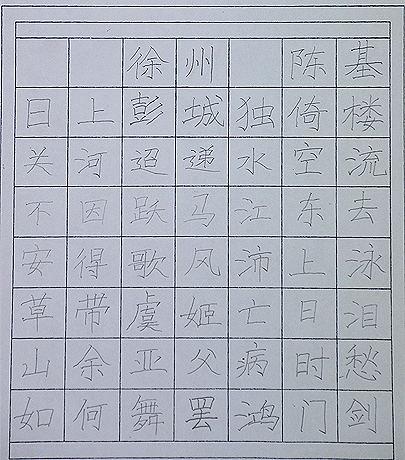 徐州 陈基
日上彭城独倚楼
关河迢递水空流
不因跃马江东去
安得歌风沛上泳
草带虞姬亡日泪
山余亚父病时愁
如何舞罢鸿门剑